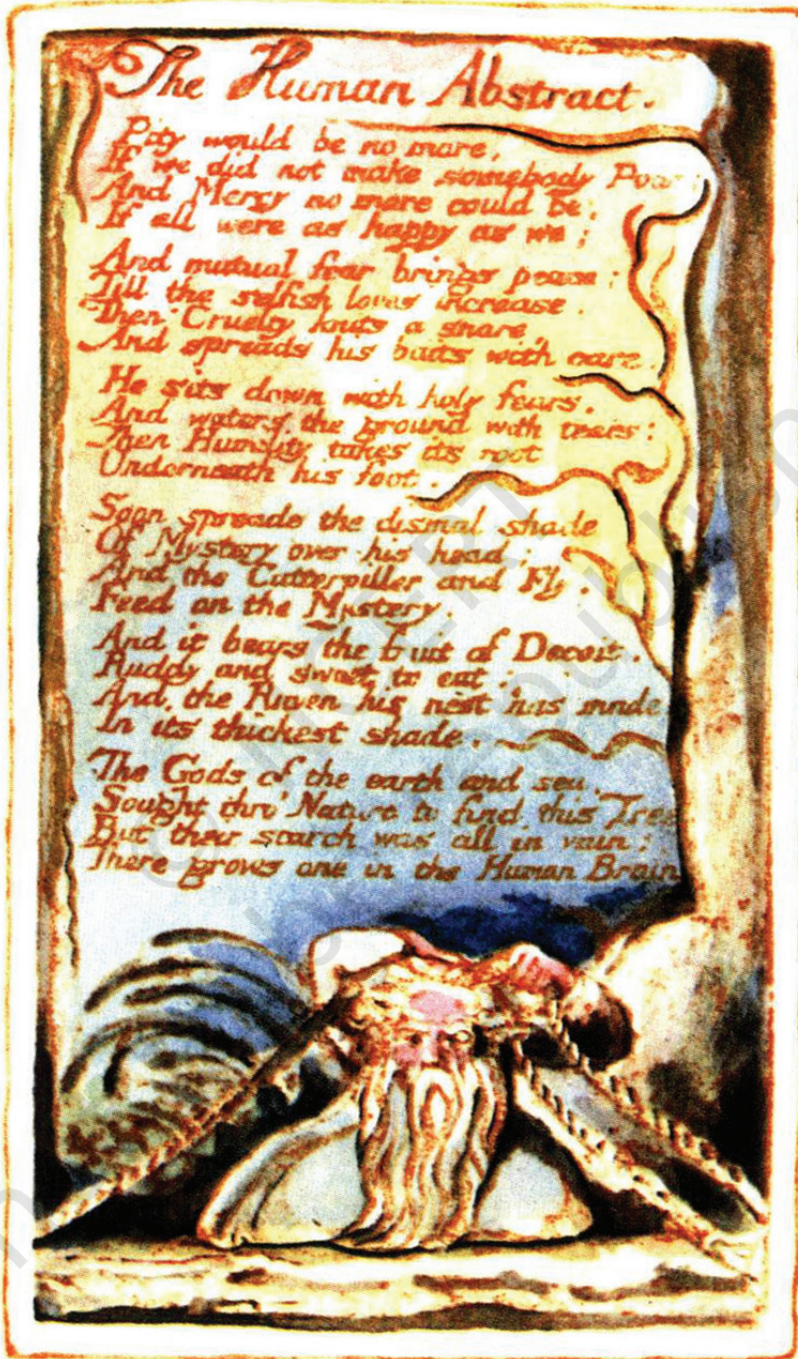 The Human Abstract.
Pity would be no more,
If we did not make somebody Poor:
And Mercy no more could be,
If all were as happy as we;
And mutual fear brings peace;
Till the selfish loves increase.
Then Cruelty knits a snare,
And spreads his baits with care.
He sits down with holy fears,
And waters the ground with tears:
Then Humility takes its root
Underneath his foot.
Soon spreads the dismal shade
Of Mystery over his head;
And the Catterpiller and Fly,
Feed on the Mystery.
And it bears the fruit of Deceit,
Ruddy and sweet to eat;
And the Raven his nest has made
In its thickest shade.
The Gods of the earth and sea,
Sought thro' Nature to find this Tree
But their search was all in vain:
There grows one in the Human Brain